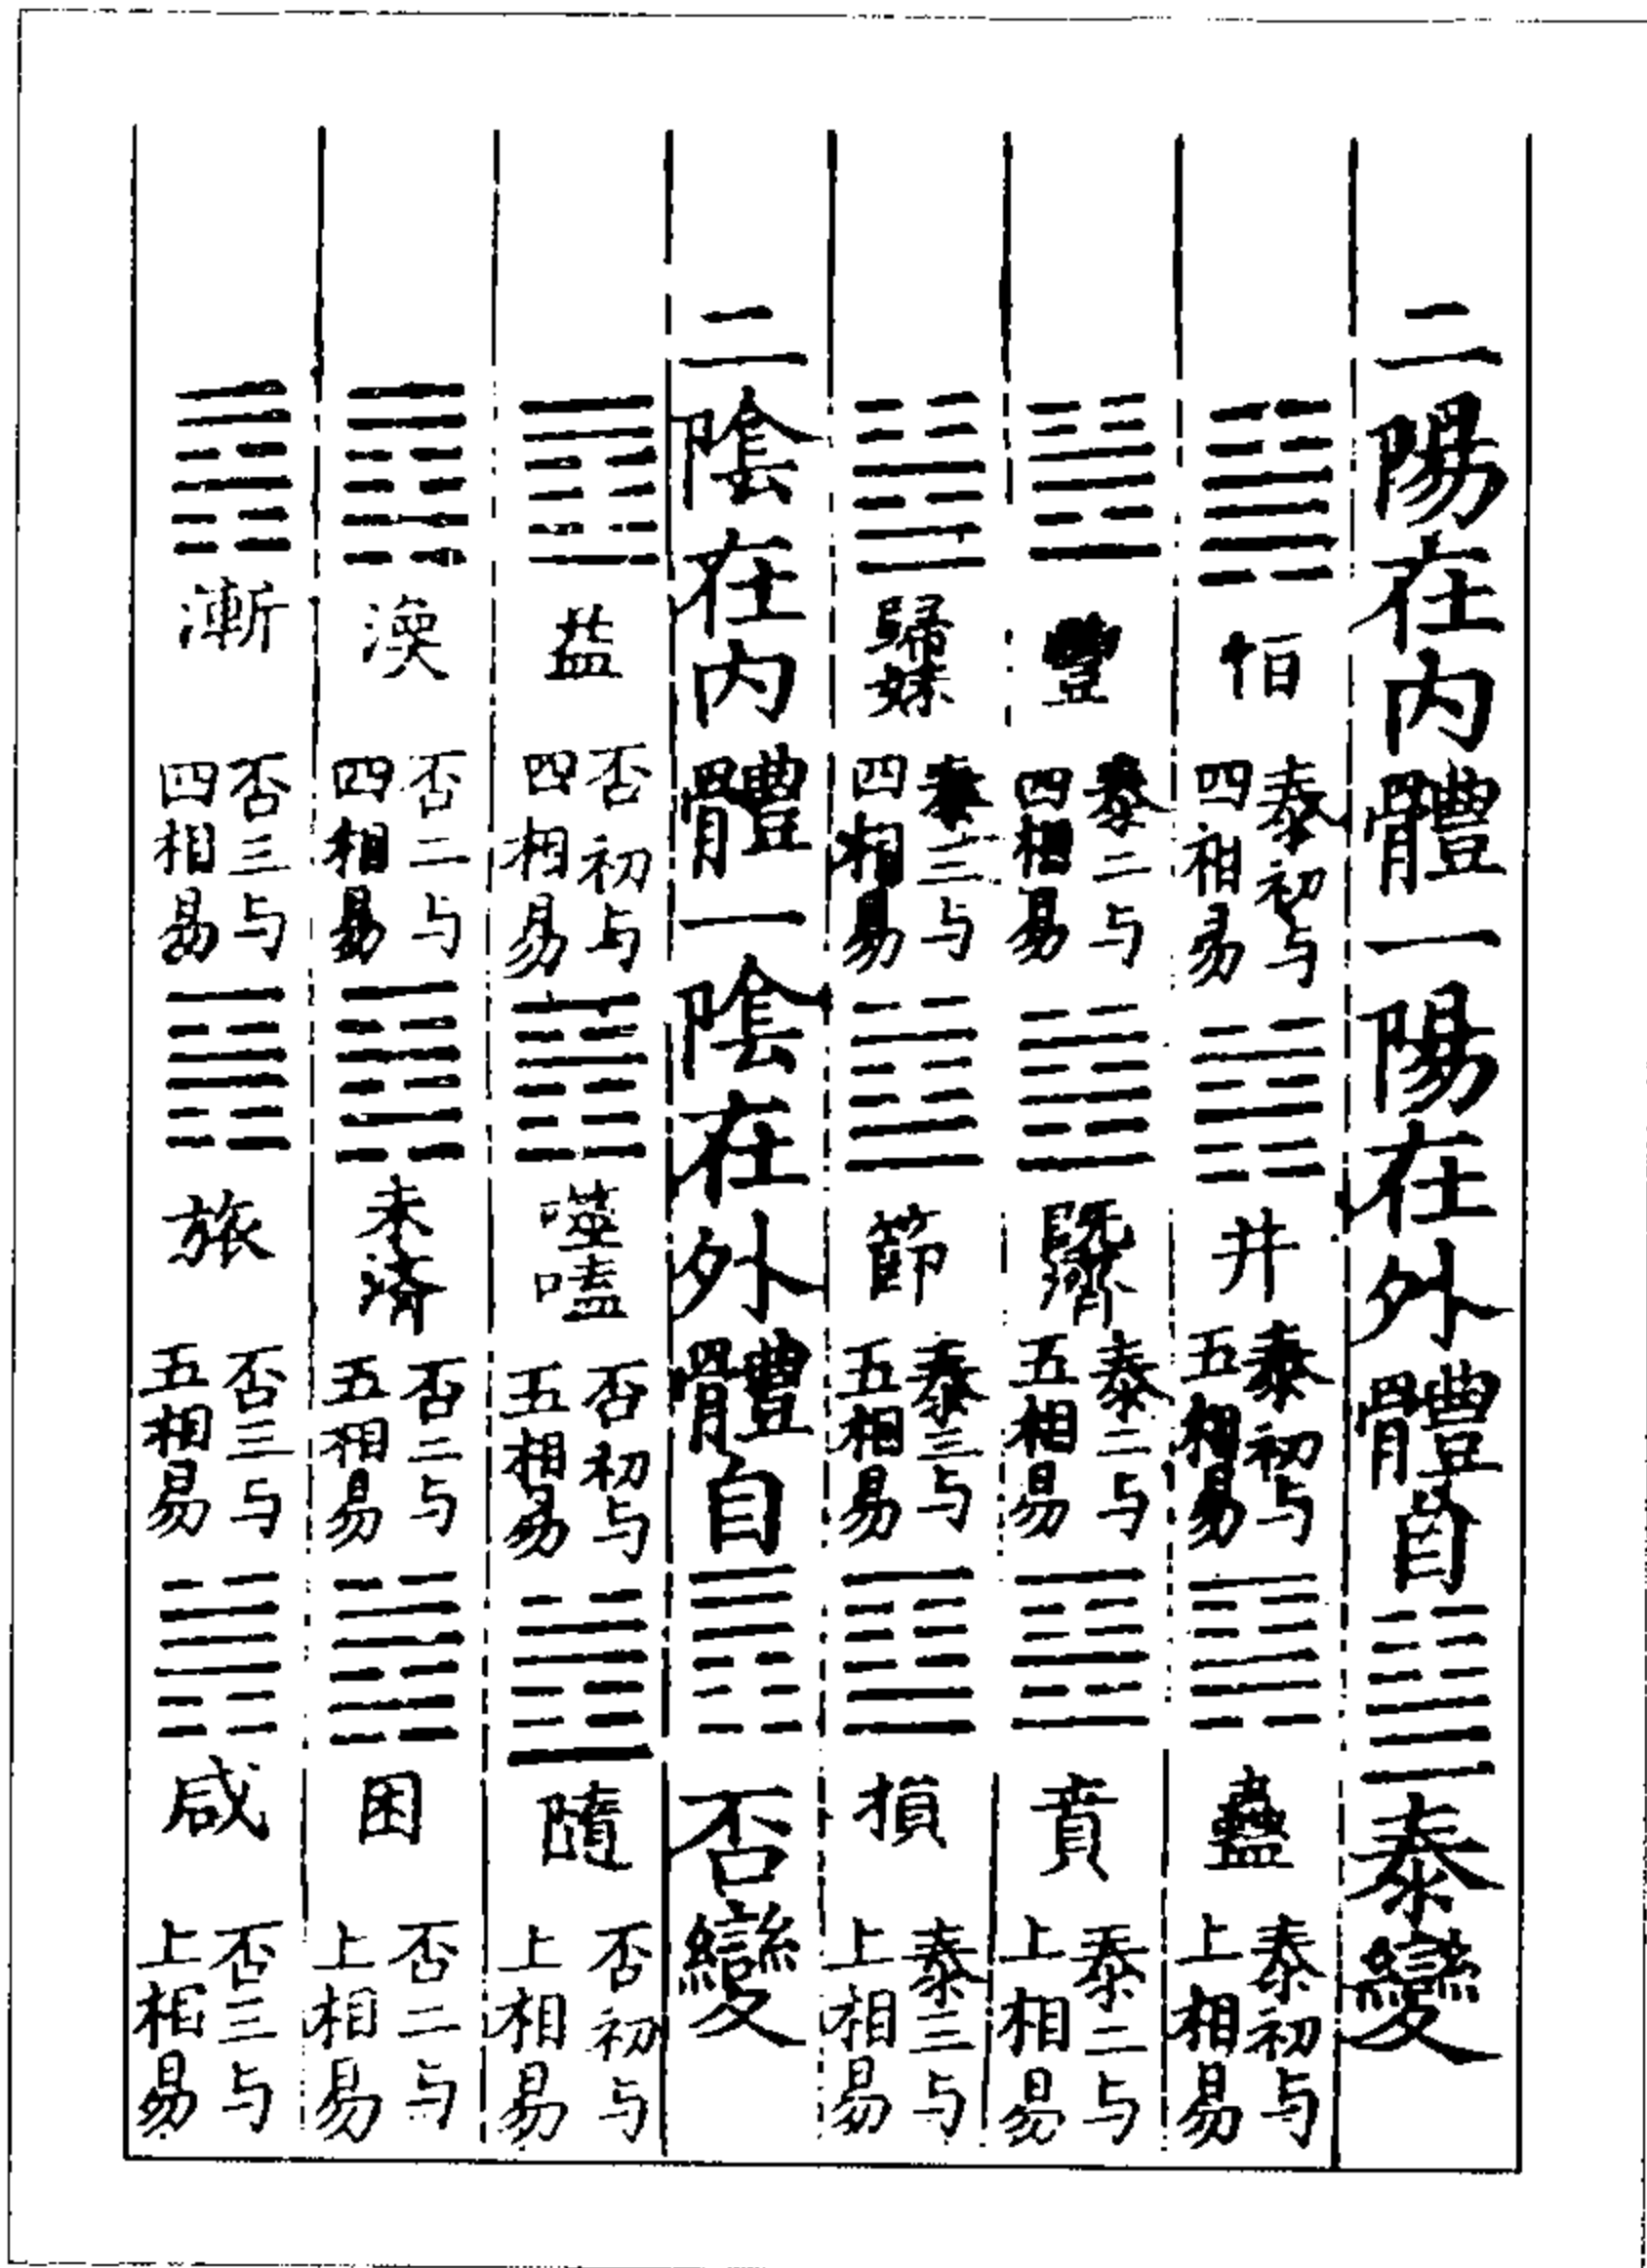 二陽在内體一陽在外體自泰變
恒 泰初与四相易 井 泰初与五相易 蠱 泰初与上相易
豐 泰二与四相易 既濟 泰二与五相易 賁 泰二与上相易
歸妹 泰三与四相易 節 泰三与五相易 損 泰三与上相易
二陰在内體一陰在外體自否變
益 否初与四相易 噬嗑 否初与五相易 隨 否初与上相易
渙 否二与四相易 未濟 否二与五相易 困 否二与上相易
漸 否三与四相易 旅 否三与五相易 咸 否三与上相易